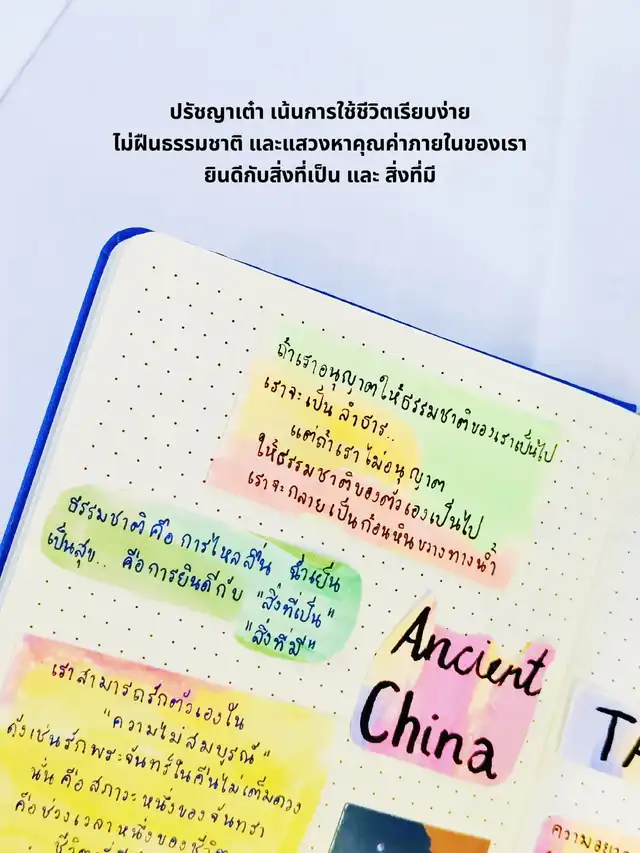 ปรัชญาเต๋า เน้นการใช้ชีวิตเรียบง่าย
ไม่ฝืนธรรมชาติ และแสวงหาคุณค่าภายในของเรา
ยินดีกับสิ่งที่เป็น และ สิ่งที่มี
ถ้าเราอนุญาตให้ธรรมชาติของเราเป็นไป
เราจะเป็น ลำธาร..
แต่ถ้าเราไม่อนุญาต
ให้ธรรมชาติของตัวเองเป็นไป
เราจะกลายเป็นก้อนหินขวางทางน้ำ
ธรรมชาติ คือ การไหลลื่น ฉ่ำเย็น
เป็นสุข.. คือการยินดีกับ "สิ่งที่เป็น"
"สิ่งที่มี"
Ancient
China
เราสามารถรักตัวเองใน
"ความไม่สมบูรณ์"
ดังเช่นรักพระจันทร์ในคืนไม่เต็มดวง
นั่นคือสภาวะหนึ่งของจันทรา
คือช่วงเวลาหนึ่งของชีวิต
TA
ความอยาก